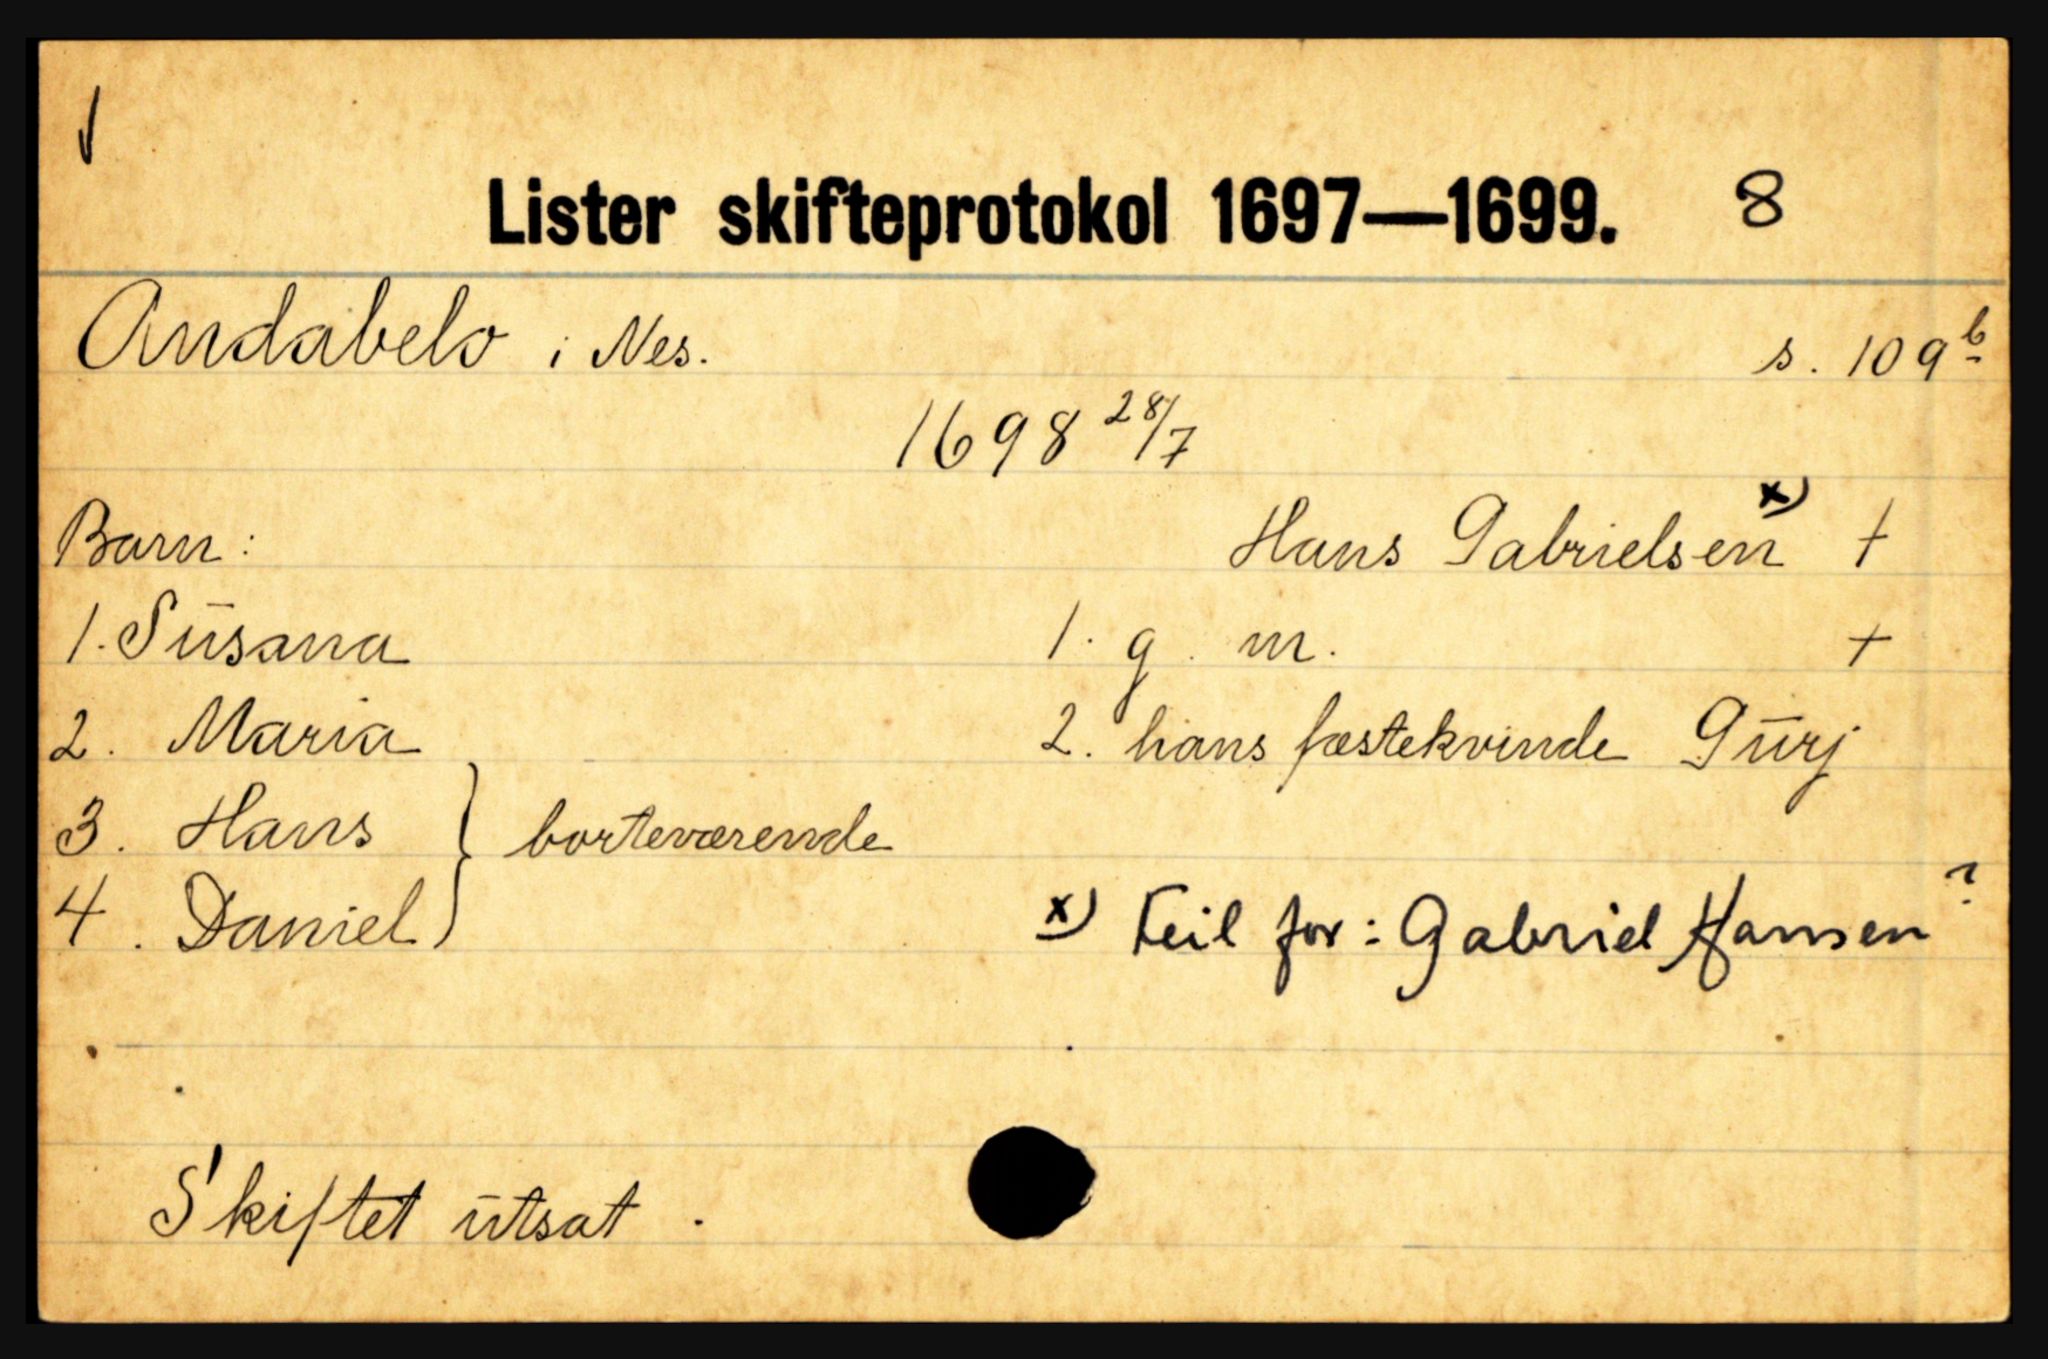 Lister skifteprotokol 1697—1699. 8
Andabelo i Nes. s. 109b
1698 28/7
Barn: Hans Gabrielsen x) †
1. Sūsana 1. g. m. +
2. Maria 2. hans fæstekvinde Gūrj
3. Hans } borteværende
4. Daniel
x) Feil for: Gabriel Hansen?
Skiftet ūtsat.